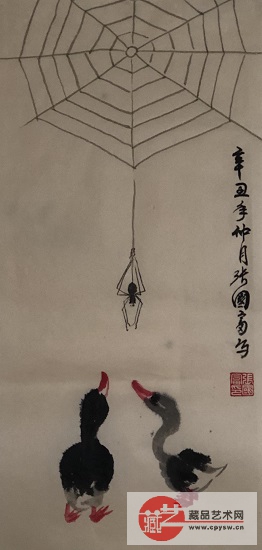 辛丑年仲月张國富写
藏艺
藏品艺术网
www.cpysw.cn